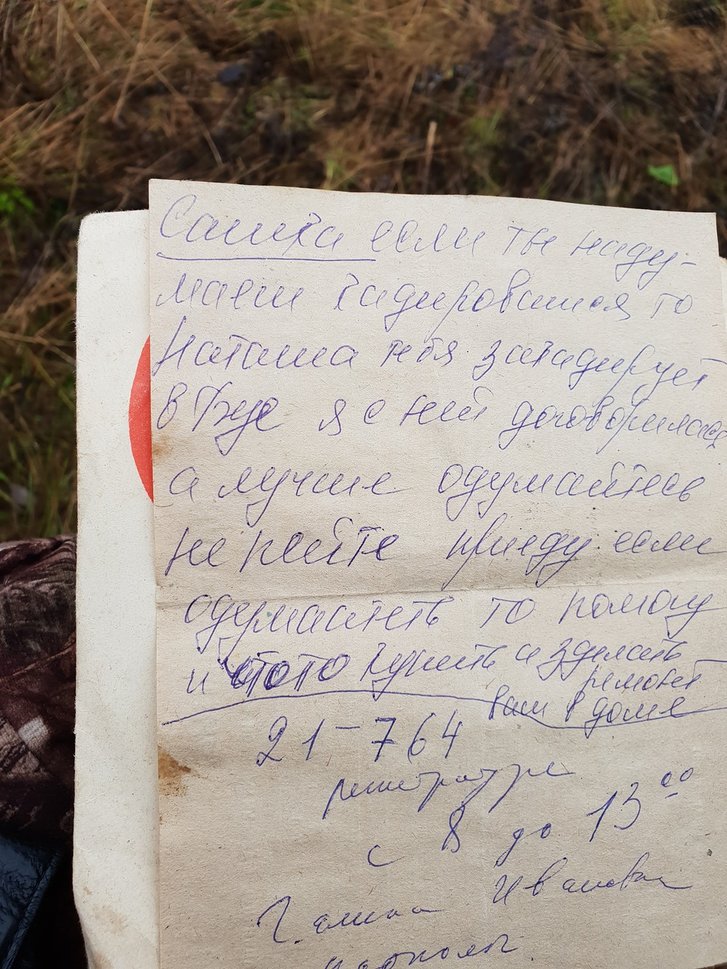 Сашка если ты наду-
маеш кадироватся то
Наташа тебя закадирует
в Буе я с ней договорилась
а лучше одумайтесь
не пейте приеду если
одумаететь то помогу
и што то купить и зделать
ремонт
вам в доме
21-764
регистратура
с 8 до 13 00
Галина Ивановна